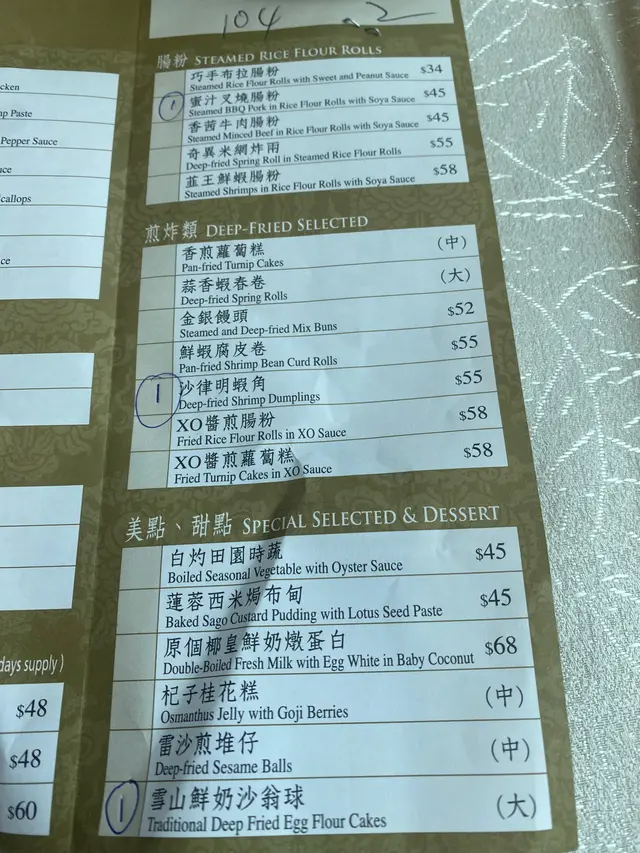 104 2
腸粉 STEAMED RICE FLOUR ROLLS
巧手布拉腸粉
Steamed Rice Flour Rolls with Sweet and Peanut Sauce $34
1 蜜汁叉燒腸粉
Steamed BBQ Pork in Rice Flour Rolls with Soya Sauce $45
香茜牛肉腸粉
Steamed Minced Beef in Rice Flour Rolls with Soya Sauce $45
奇異米網炸兩
Deep-fried Spring Roll in Steamed Rice Flour Rolls $55
韮王鮮蝦腸粉
Steamed Shrimps in Rice Flour Rolls with Soya Sauce $58
煎炸類 DEEP-FRIED SELECTED
香煎蘿蔔糕 (中)
Pan-fried Turnip Cakes
蒜香蝦春卷 (大)
Deep-fried Spring Rolls
金銀饅頭 $52
Steamed and Deep-fried Mix Buns
鮮蝦腐皮卷 $55
Pan-fried Shrimp Bean Curd Rolls
1 沙律明蝦角 $55
Deep-fried Shrimp Dumplings
XO醬煎腸粉 $58
Fried Rice Flour Rolls in XO Sauce
XO醬煎蘿蔔糕 $58
Fried Turnip Cakes in XO Sauce
美點、甜點 SPECIAL SELECTED & DESSERT
白灼田園時蔬 $45
Boiled Seasonal Vegetable with Oyster Sauce
蓮蓉西米焗布甸 $45
Baked Sago Custard Pudding with Lotus Seed Paste
原個椰皇鮮奶燉蛋白 $68
Double-Boiled Fresh Milk with Egg White in Baby Coconut
杞子桂花糕 (中)
Osmanthus Jelly with Goji Berries
雷沙煎堆仔 (中)
Deep-fried Sesame Balls
1 雪山鮮奶沙翁球 (大)
Traditional Deep Fried Egg Flour Cakes
Paste
Pepper Sauce
days supply)
$48
$48
$60